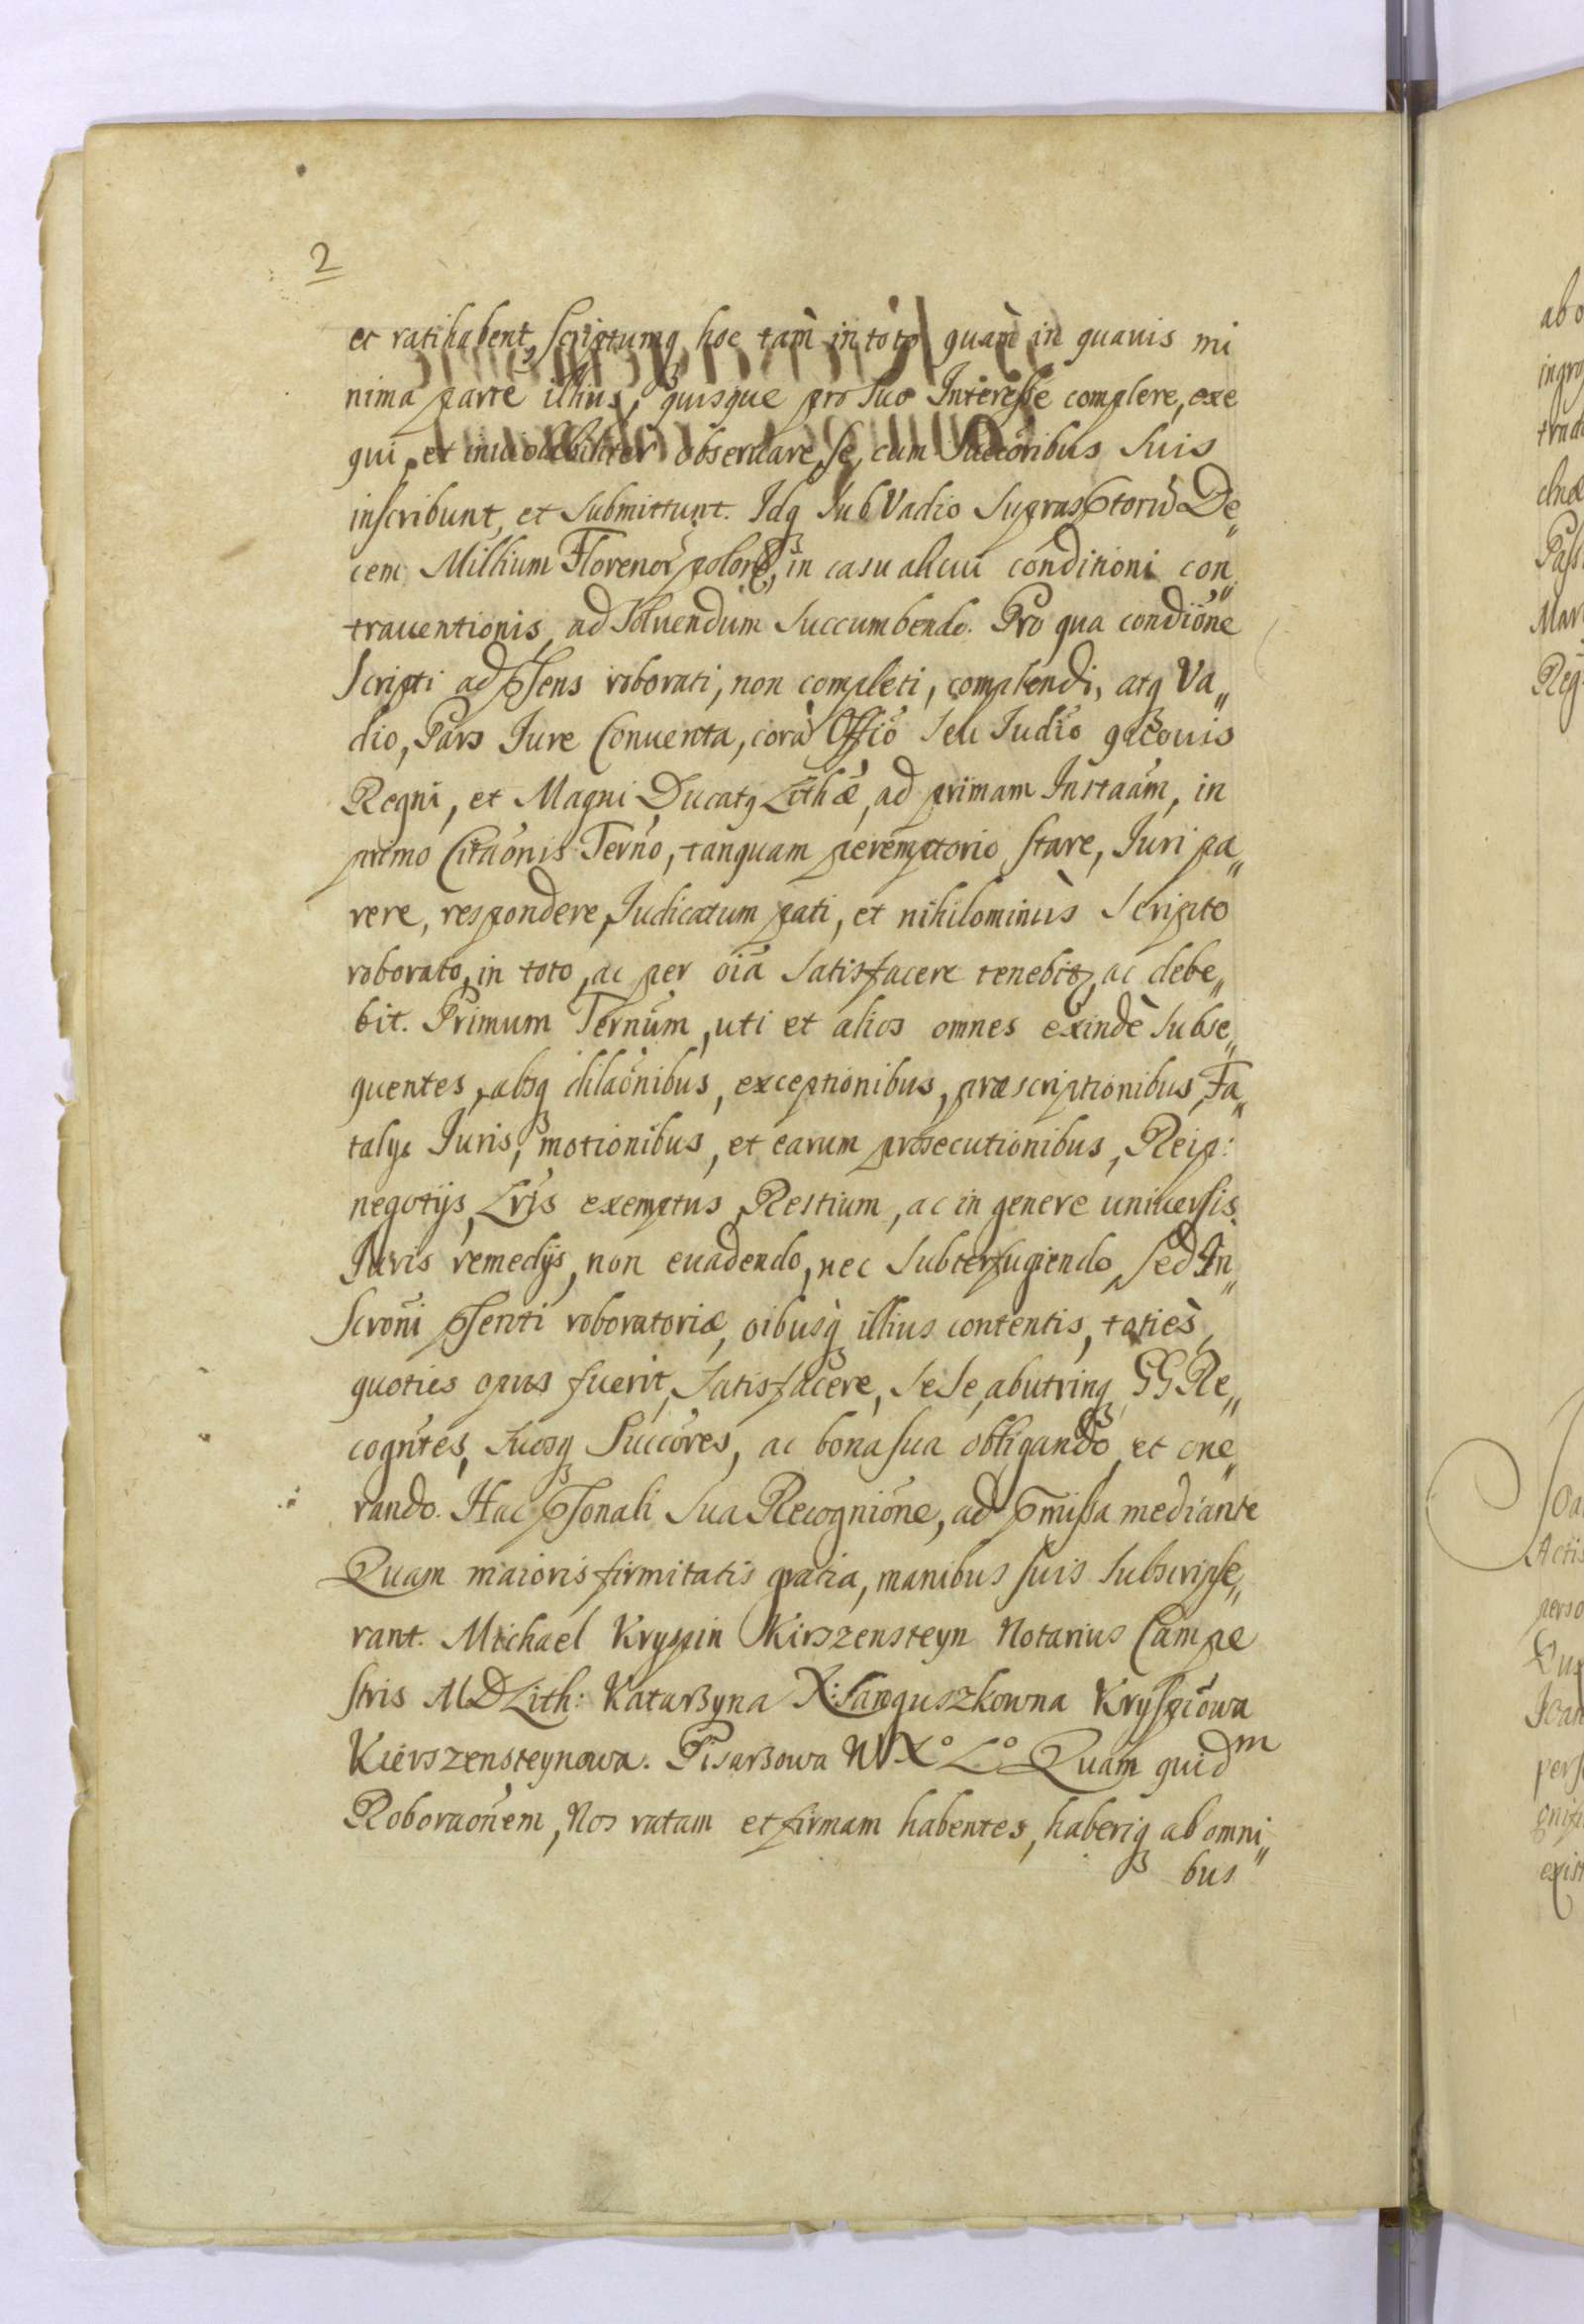 2
et ratihabent, scriptumq3 hoc tam̀ in toto quam̀ in quauis mi
nima parte illius, quisque pro suo Interesse complere, exe
qui, et inuiolabiliter obseruare, se, cum Succoribus suis
inscribunt, et submittunt. Idq3 sub Vadio suprasptorũ De„
cem Millium Florenor polon: in casu alicui conditioni con„
trauentionis, ad soluendum succumbendo. Pro qua condiõne
Scripti ad pñsens roborati, non completi, complendi, atq3 Va„
dio, Pars Iure Conuenta, corã Offiõ seu Iudiõ qŭocuis
Regni, et Magni Ducatq Lithæ, ad primam Instaãm, in
primo Citaõnis Terñno, tanquam peremptorio stare, Iuri pa„
rere, respondere, Iudicatum pati, et nihilominùs Scripto
roborato, in toto, ac per oĩa satisfacere tenebitr, ac debe„
bit. Primum Terñum, uti et alios omnes exindè subse„
quentes, absq3 dilaõnibus, exceptionibus, præscriptionibus, Fa„
talijs Iuris, motionibus, et earum prosecutionibus, Reip:
negotijs, Lrĩs exemptus Restium, ac in genere uniuersis
Iuris remedijs, non euadendo, nec subterfugiendo, sed In„
scroñi pñsenti roboratoriæ, oĩbusq3 illius contentis, totiès,
quoties opus fuerit, satisfacere, sese, abutrinq3 GG Re„
cogñtes, suosq3 Succõres, ac bona sua obligando, et one„
rando. Hac psonali sua Recogniõne, ad pmissa mediante
Quam maioris firmitatis gratia, manibus suis subscripse„
rant. Michael Kryspin Kirszensteyn Notarius Campe
stris MDLith: Katarzyna X: Sanguszkowna Kryspiõwa
Kierszensteynowa. Pisarzowa W X° L° Quam quidm
Roboraõnem, Nos ratam et firmam habentes, haberiq3 ab omni„
bus